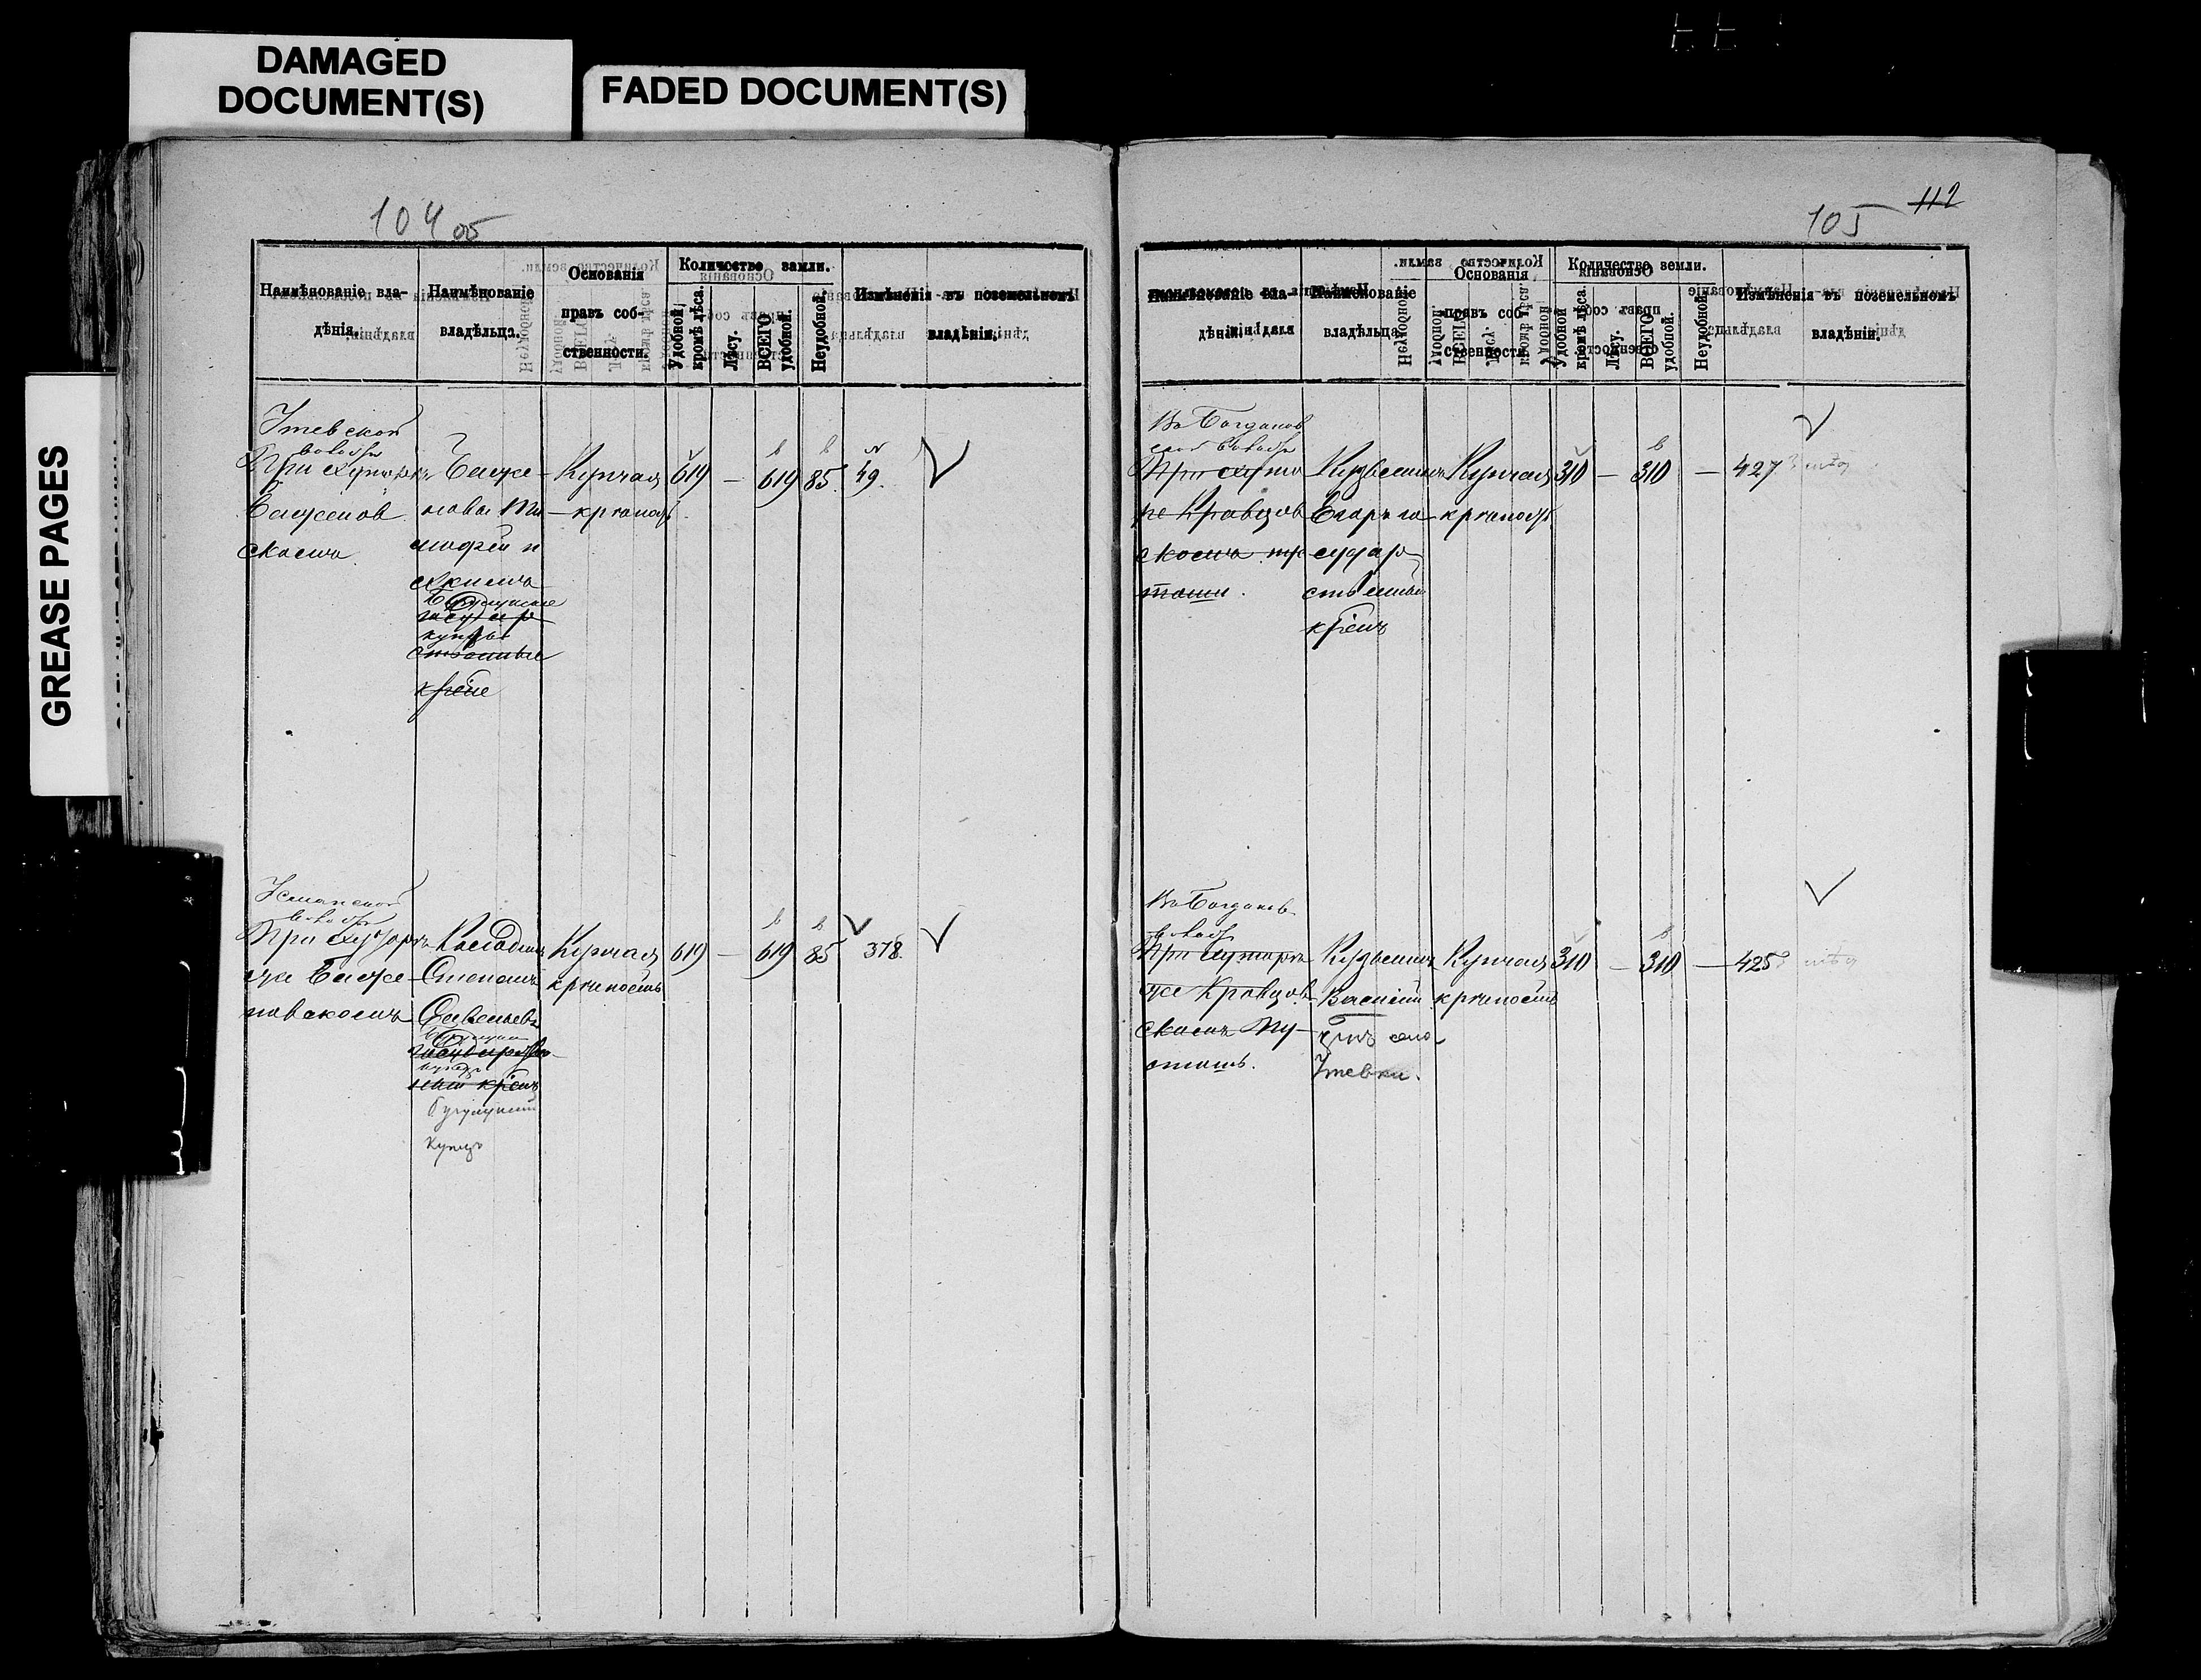 DAMAGED
DOCUMENT(S)
FADED DOCUMENT(S)
GREASE PAGES
104 об
Наимѣнованіе вла-
дѣнія.
Наимѣнованіе
владѣльца.
Основанія
правъ соб-
ственности.
Количество земли.
Удобной
кромѣ лѣса.
Лѣсу.
ВСЕГО
удобной.
Неудобной.
Измѣненія въ поземельномъ
владѣніи.
Утевской
волости
При хуторѣ
Баженов
скомъ
Баже
новы Ти
мофей и
Якимъ
Бузулукские
государ
купцы
ственные
кр̃не
Купчая
крѣпость
619 — 619 85. 49.
волости
При хуторѣ
же Баже
новскомъ
Степанъ
Савельевъ
кр̃нъ
Бузулукский
Купецъ
Купчая
крѣпость
619 — 619 85 378.
112
105
Наимѣнованіе вла-
дѣнія.
Наимѣнованіе
владѣльца.
Основанія
правъ соб-
ственности.
Количество земли.
Удобной
кромѣ лѣса.
Лѣсу.
ВСЕГО
удобной.
Неудобной.
Измѣненія въ поземельномъ
владѣніи.
Въ Богданов
ской волости
При хуто
ре Кравцов
скомъ
Кузьминъ
Егоръ го
судар
ственный
кр̃нъ
Купчая
крѣпость
310 — 310 — 427
Въ Богданов
волость
При хуторѣ
же Кравцов
скомъ Пу
стошь.
Кузьминъ
Василий
село
Утевки.
Купчая
крѣпость
310 — 310 — 425